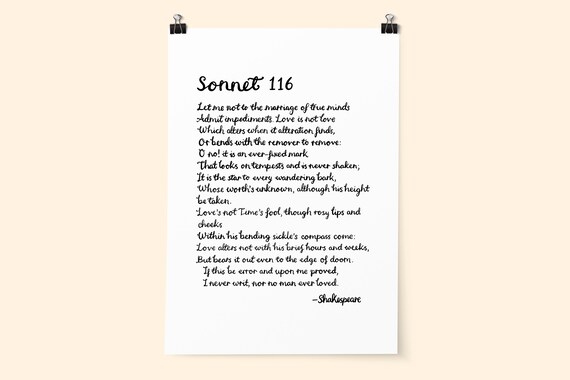 Sonnet 116
Let me not to the marriage of true minds
Admit impediments. Love is not love
Which alters when it alteration finds,
Or bends with the remover to remove:
O no! it is an ever-fixed mark
That looks on tempests and is never shaken;
It is the star to every wandering bark,
Whose worth's unknown, although his height
be taken.
Love's not Time's fool, though rosy lips and
cheeks
Within his bending sickle's compass come:
Love alters not with his brief hours and weeks,
But bears it out even to the edge of doom.
If this be error and upon me proved,
I never writ, nor no man ever loved.
—Shakespeare